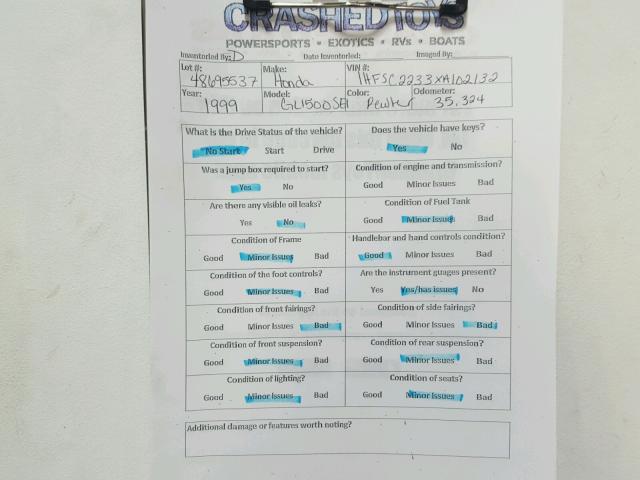 CRASHEDTOYS
POWERSPORTS • EXOTICS • RVs • BOATS
Inventoried By: D Date Inventoried: Imaged By:
Lot #: Make: VIN #:
48695537 Honda 1HFSC2233XA102132
Year: Model: Color: Odometer:
1999 GL1500SE Pewter 35,324
What is the Drive Status of the vehicle? Does the vehicle have keys?
No Start Start Drive Yes No
Was a jump box required to start? Condition of engine and transmission?
Yes No Good Minor Issues Bad
Are there any visible oil leaks? Condition of Fuel Tank
Yes No Good Minor Issues Bad
Condition of Frame Handlebar and hand controls condition?
Good Minor Issues Bad Good Minor Issues Bad
Condition of the foot controls? Are the instrument guages present?
Good Minor Issues Bad Yes Yes/has issues No
Condition of front fairings? Condition of side fairings?
Good Minor Issues Bad Good Minor Issues Bad
Condition of front suspension? Condition of rear suspension?
Good Minor Issues Bad Good Minor Issues Bad
Condition of lighting? Condition of seats?
Good Minor Issues Bad Good Minor Issues Bad
Additional damage or features worth noting?